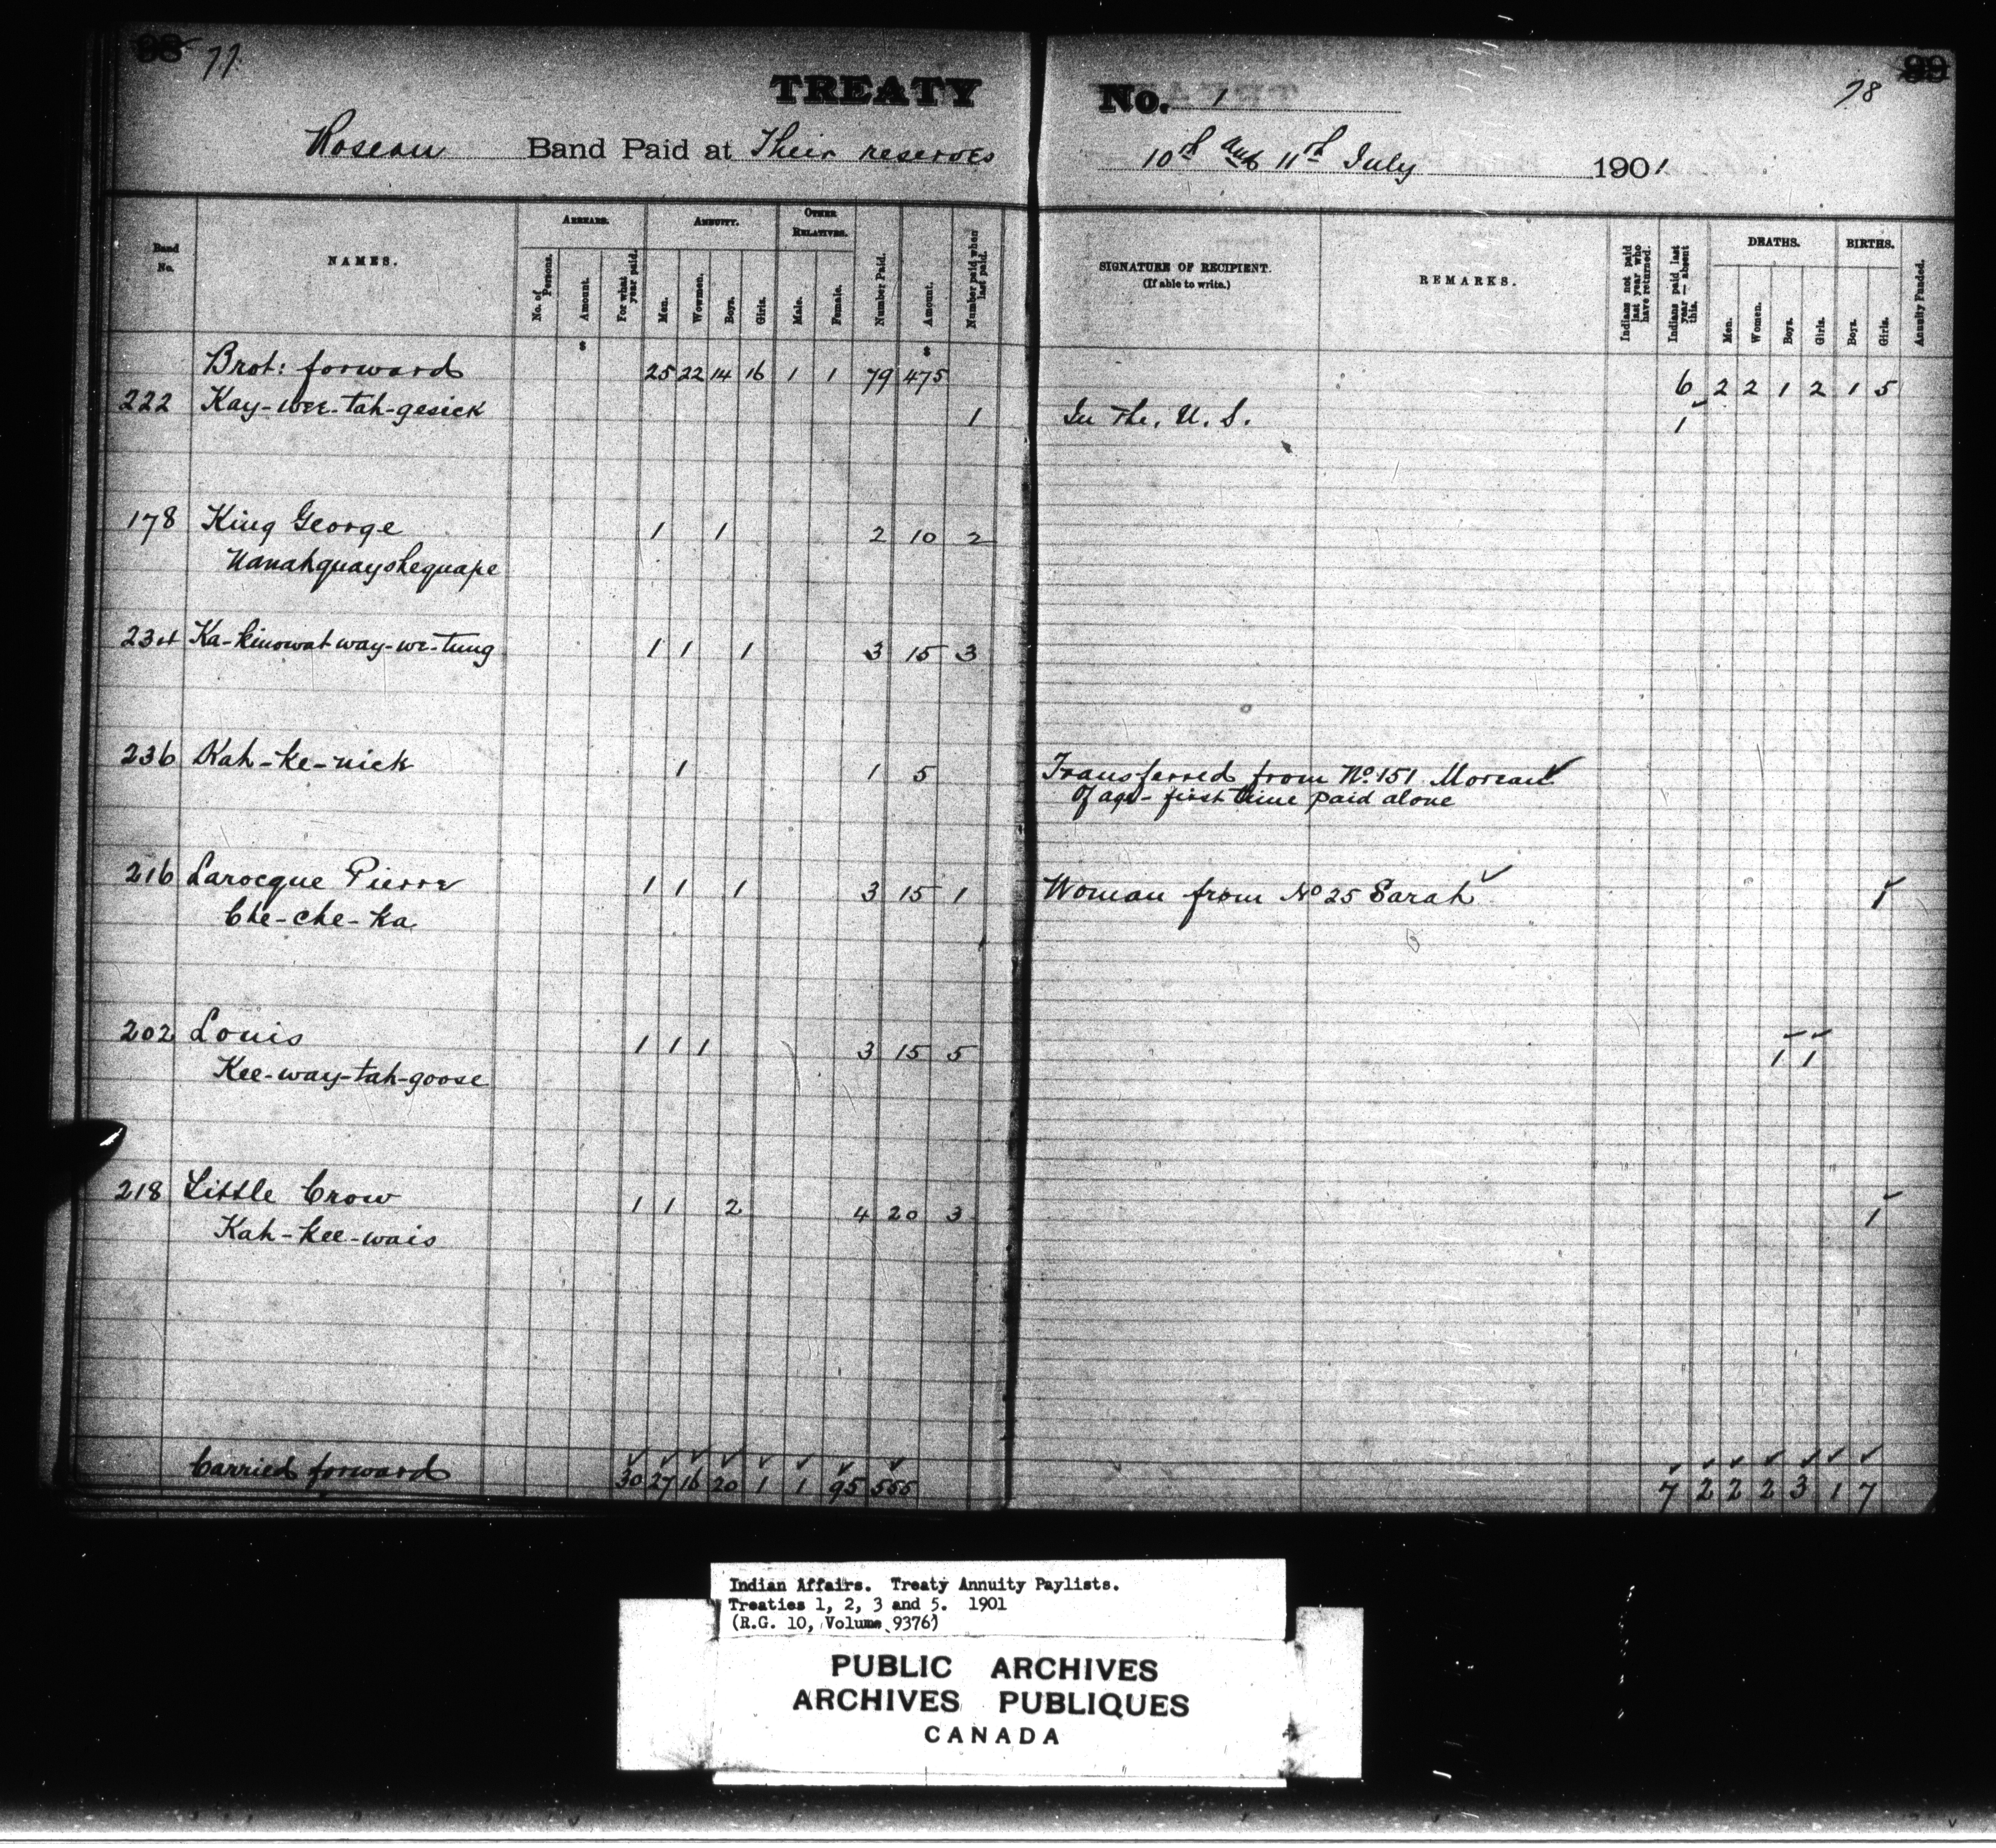 98 77
TREATY No. 1
99 78
Roseau Band Paid at Their reserves 10th and 11th July 1901
Band No. NAMES. ARREARS. No. of Persons. Amount. For what year paid. ANNUITY. Men. Women. Boys. Girls. OTHER RELATIVES. Male. Female. Number Paid. Amount. Number paid when last paid.
SIGNATURE OF RECIPIENT. (If able to write.) REMARKS. Indians not paid last year who have returned. Indians paid last year — absent this. DEATHS. Men. Women. Boys. Girls. BIRTHS. Boys. Girls. Annuity Funded.
$ $
Brot: forward 25 22 14 16 1 1 79 475 6 2 2 1 2 1 5
222 Kay-wee-tah-gesick 1 In the. U. S. 1
178 King George 1 1 2 10 2
Nanahquayshequape
234 Ka-kinowatway-we-tung 1 1 1 3 15 3
236 Kah-ke-nick 1 1 5 Transferred from No. 151 Moreau
Of age - first time paid alone
216 Larocque Pierre 1 1 1 3 15 1 Woman from No 25 Sarah 1
Che-che-ka
202 Louis 1 1 1 3 15 5 1 1
Kee-way-tah-goose
218 Little Crow 1 1 2 4 20 3 1
Kah-kee-wais
Carried forward 30 27 16 20 1 1 95 555 7 2 2 2 3 1 7
Indian Affairs. Treaty Annuity Paylists.
Treaties 1, 2, 3 and 5. 1901
(R.G. 10, Volume 9376)
PUBLIC ARCHIVES
ARCHIVES PUBLIQUES
CANADA